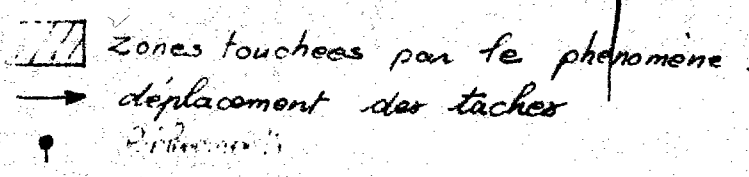 zones touchees par le phénomène.
déplacement des taches